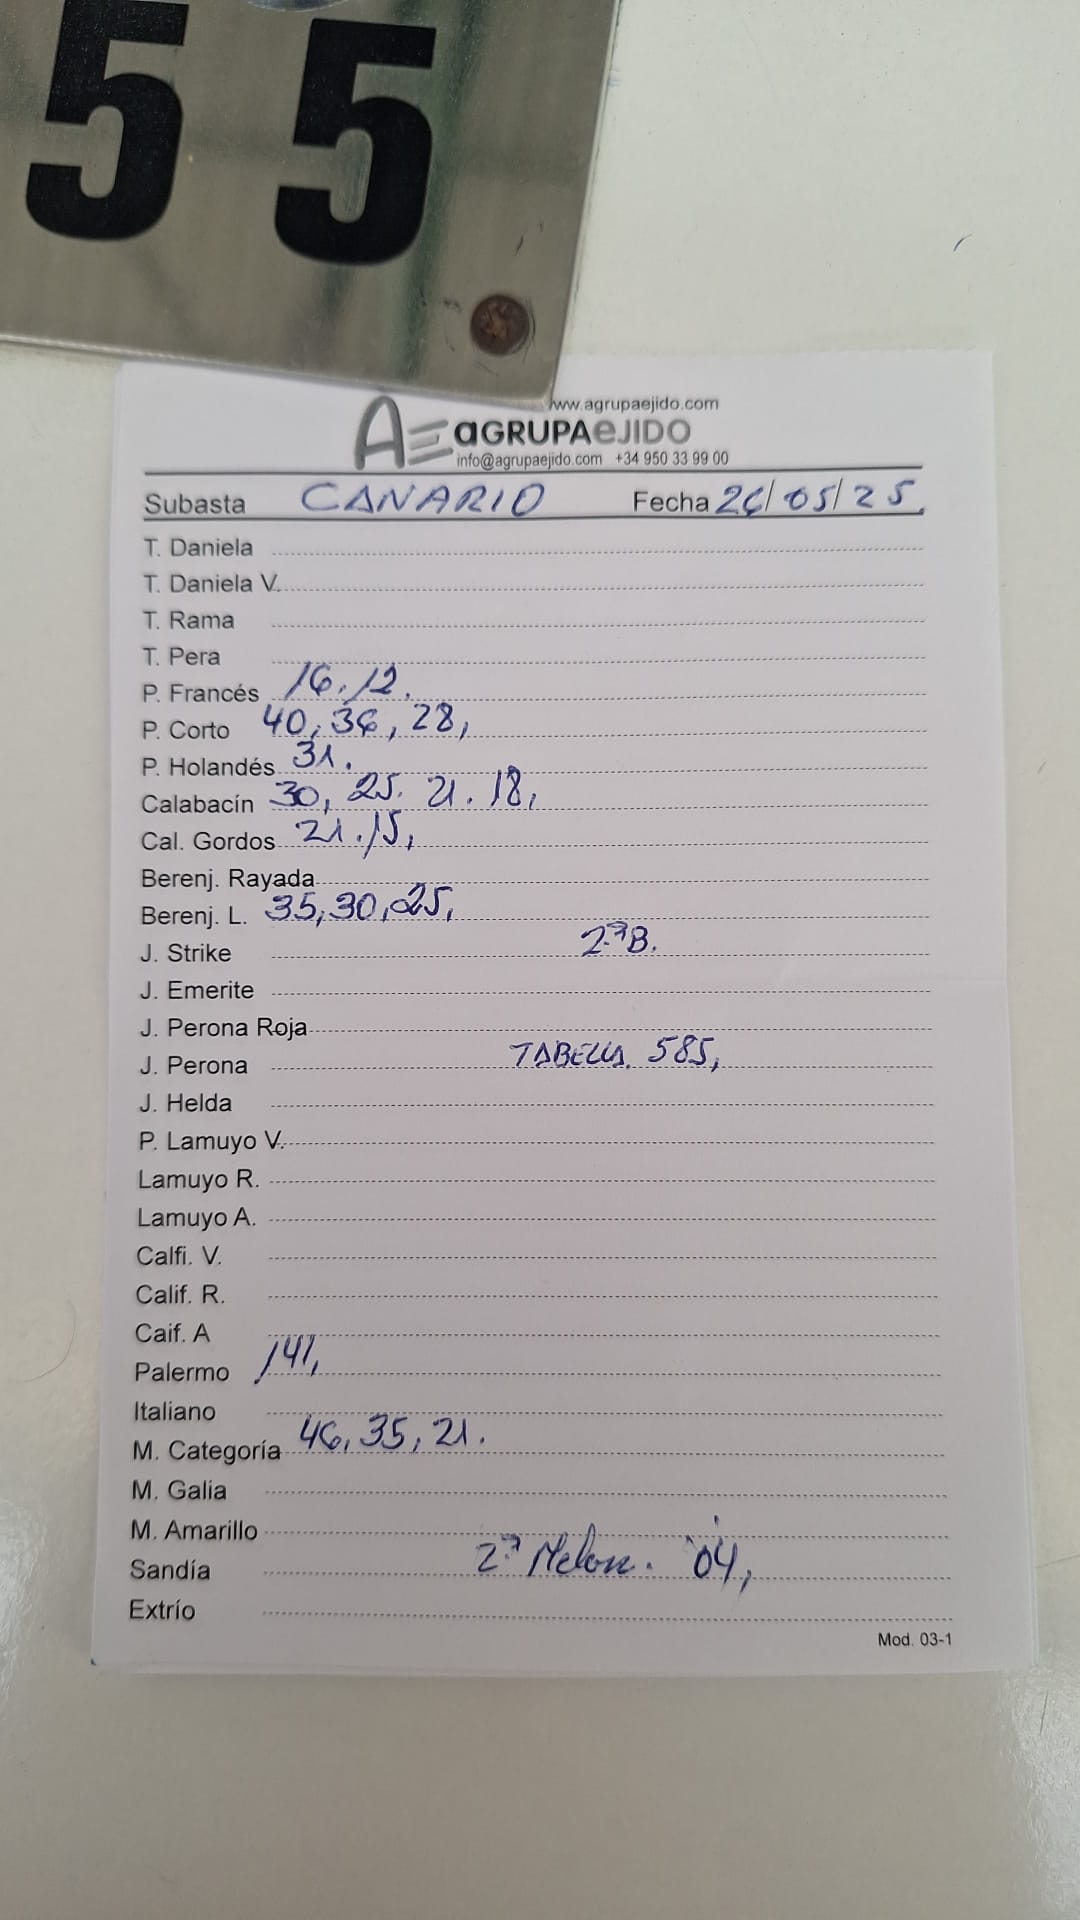 55
www.agrupaejido.com
AE aGRUPAeJIDO
info@agrupaejido.com +34 950 33 99 00
Subasta CANARIO Fecha 26/05/25.
T. Daniela
T. Daniela V.
T. Rama
T. Pera
P. Francés 16. 12.
P. Corto 40, 36, 28,
P. Holandés 31.
Calabacín 30, 25. 21. 18,
Cal. Gordos 21. 15,
Berenj. Rayada
Berenj. L. 35, 30, 25,
J. Strike 2.ª B.
J. Emerite
J. Perona Roja
J. Perona TABELLA. 585,
J. Helda
P. Lamuyo V.
Lamuyo R.
Lamuyo A.
Calfi. V.
Calif. R.
Caif. A
Palermo 141,
Italiano
M. Categoría 46, 35, 21.
M. Galia
M. Amarillo
Sandía 2.ª Melon. '04,
Extrío
Mod. 03-1